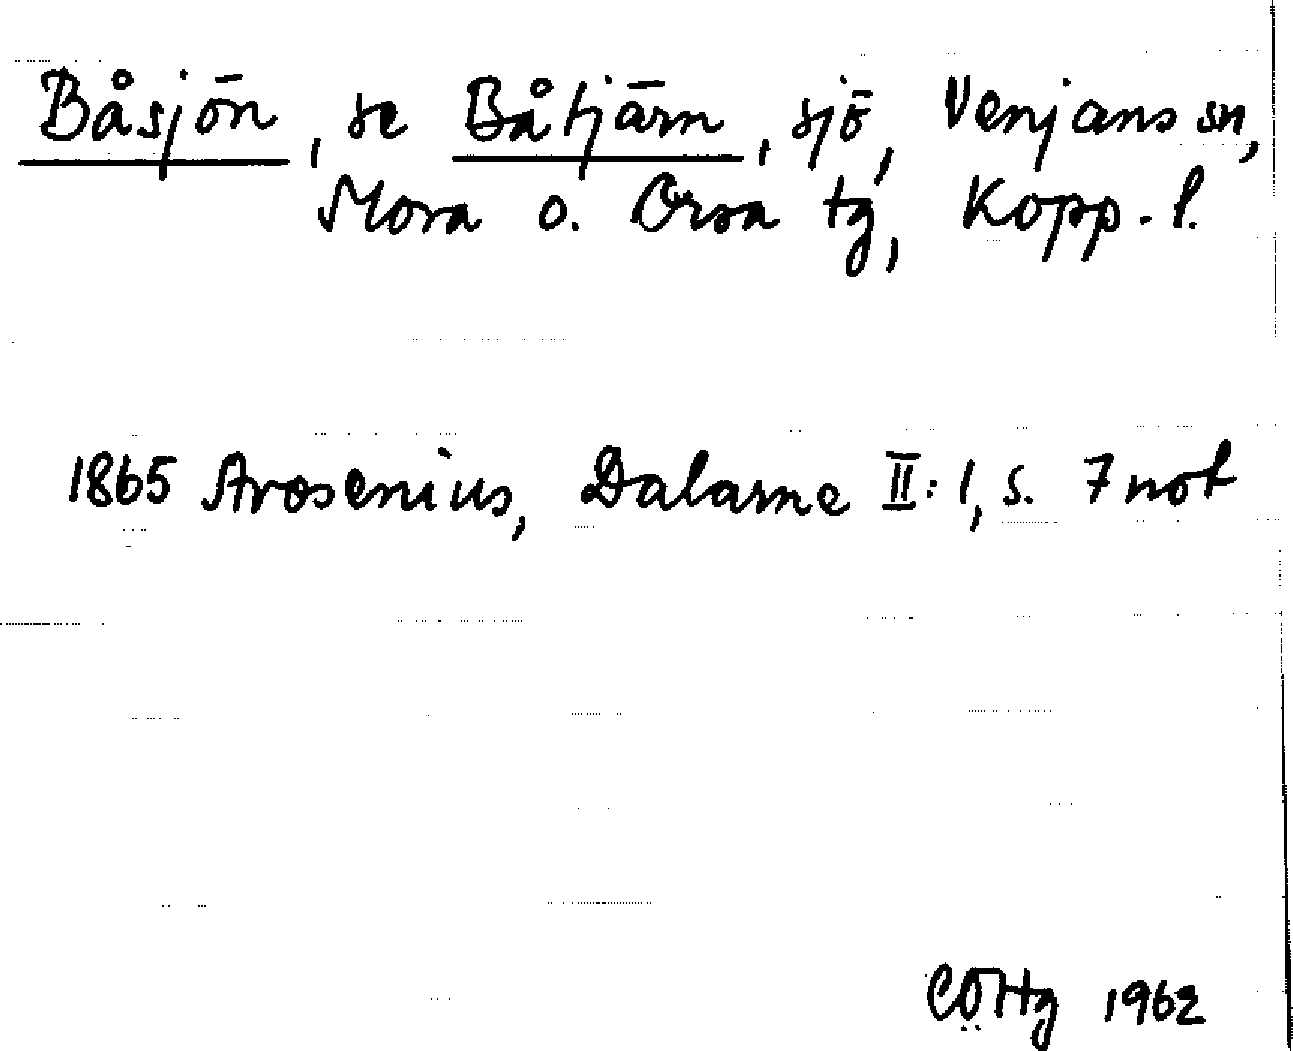 Båsjön, se Båtjärn, sjö, Venjans sn,
Mora o. Orsa tg, Kopp. l.
1865 Arosenius, Dalarne II:1, s. 7 not
CÖHg 1962